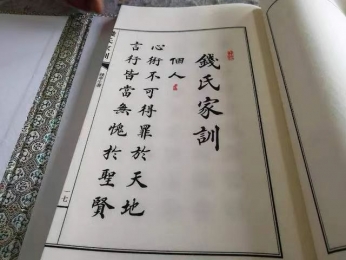 錢氏家訓
個人
心術不可得罪於天地
言行皆當無愧於聖賢
一七